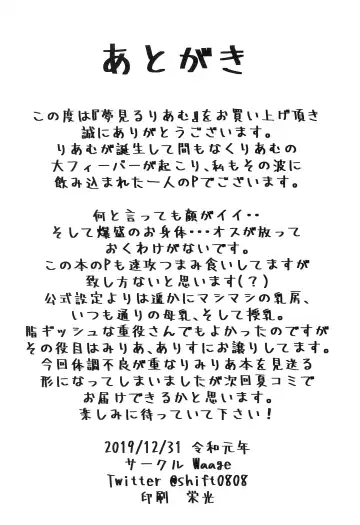 あとがき
この度は『夢見るりあむ』をお買い上げ頂き
誠にありがとうございます。
りあむが誕生して間もなくりあむの
大フィーバーが起こり、私もその波に
飲み込まれた一人のPでございます。
何と言っても顔がイイ・・
そして爆盛のお身体・・・オスが放って
おくわけがないです。
この本のPも速攻つまみ食いしてますが
致し方ないと思います(?)
公式設定よりは遥かにマシマシの乳房、
いつも通りの母乳、そして授乳。
脂ギッシュな重役さんでもよかったのですが
その役目はみりあ、ありすにお譲りしてます。
今回体調不良が重なりみりあ本を見送る
形になってしまいましたが次回夏コミで
お届けできるかと思います。
楽しみに待っていて下さい!
2019/12/31 令和元年
サークル Waage
Twitter @shift0808
印刷 栄光